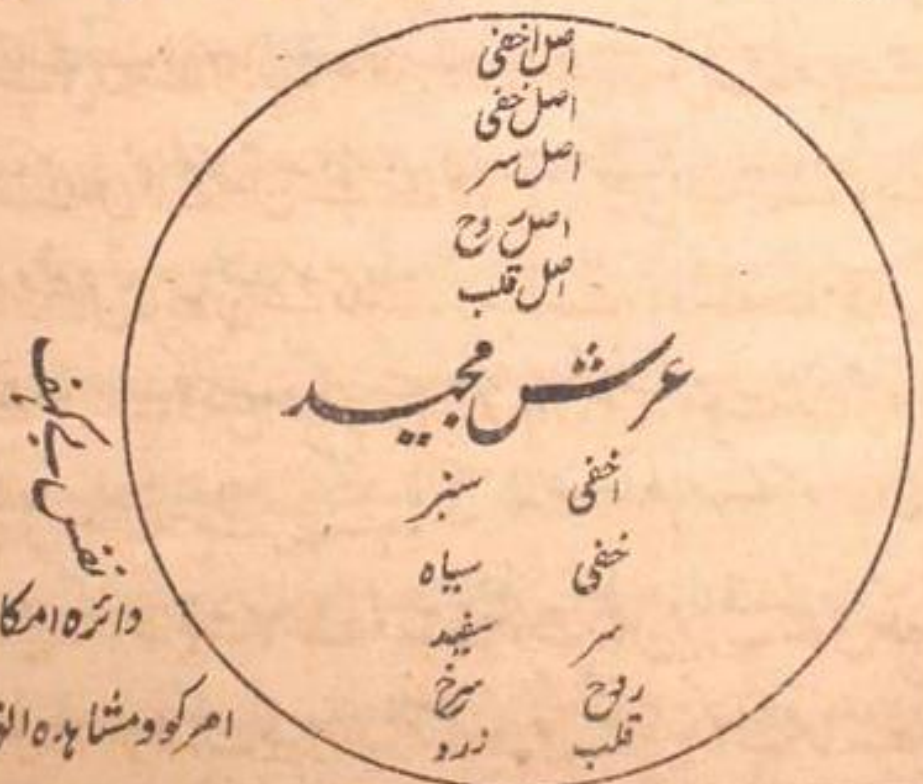 اصل اخفی
اصل خفی
اصل سر
اصل روح
اصل قلب
عرش مجید
اخفی سبز
خفی سیاہ
سر سفید
روح سرخ
قلب زرد
نفس بے کیف
دائرہ امکا
امر کو و مشاہدہ الو